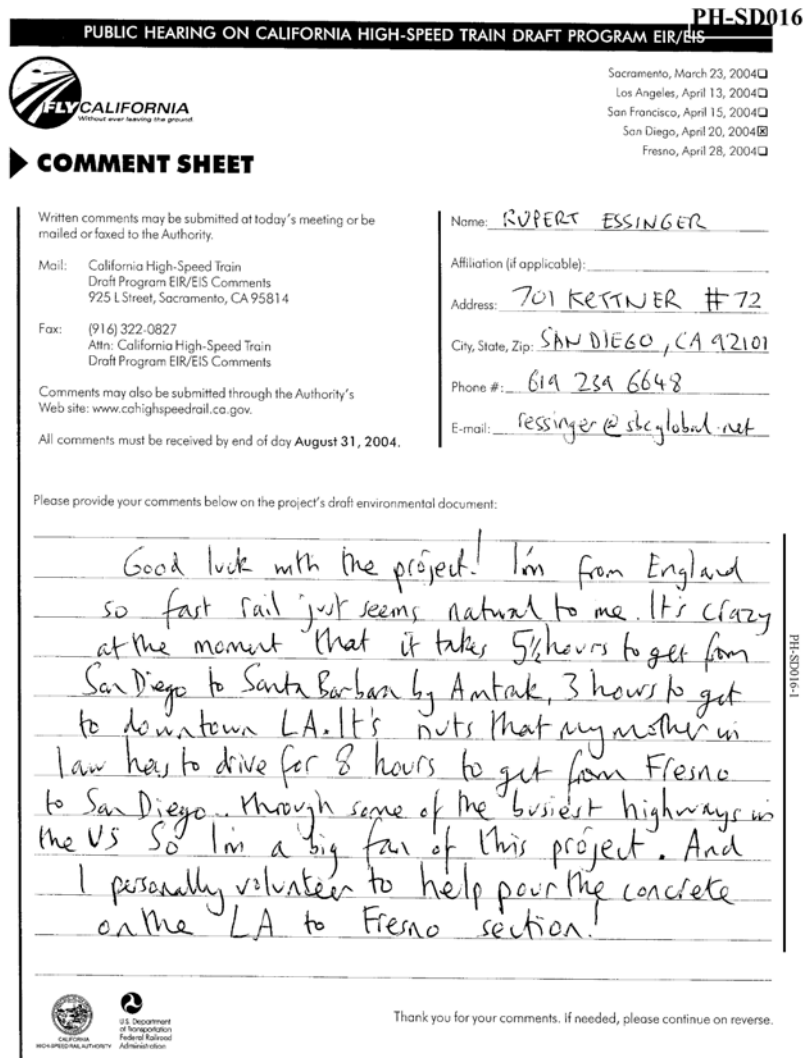 PH-SD016
PUBLIC HEARING ON CALIFORNIA HIGH-SPEED TRAIN DRAFT PROGRAM EIR/EIS
Sacramento, March 23, 2004☐
Los Angeles, April 13, 2004☐
San Francisco, April 15, 2004☐
San Diego, April 20, 2004☒
Fresno, April 28, 2004☐
FLYCALIFORNIA
Without ever leaving the ground.
COMMENT SHEET
Written comments may be submitted at today's meeting or be
mailed or faxed to the Authority.
Mail: California High-Speed Train
Draft Program EIR/EIS Comments
925 L Street, Sacramento, CA 95814
Fax: (916) 322-0827
Attn: California High-Speed Train
Draft Program EIR/EIS Comments
Comments may also be submitted through the Authority's
Web site: www.cahighspeedrail.ca.gov.
All comments must be received by end of day August 31, 2004.
Name: RUPERT ESSINGER
Affiliation (if applicable):
Address: 701 KETTNER #72
City, State, Zip: SAN DIEGO, CA 92101
Phone #: 619 239 6648
E-mail: ressinger@sbcglobal.net
Please provide your comments below on the project's draft environmental document:
Good luck with the project! I'm from England
so fast rail just seems natural to me. It's crazy
at the moment that it takes 5½ hours to get from
San Diego to Santa Barbara by Amtrak, 3 hours to get
to downtown LA. It's nuts that my mother in
law has to drive for 8 hours to get from Fresno
to San Diego.. through some of the busiest highways in
the US So I'm a big fan of this project. And
I personally volunteer to help pour the concrete
on the LA to Fresno section!
PH-SD016-1
CALIFORNIA
HIGH-SPEED RAIL AUTHORITY
U.S. Department
of Transportation
Federal Railroad
Administration
Thank you for your comments. If needed, please continue on reverse.